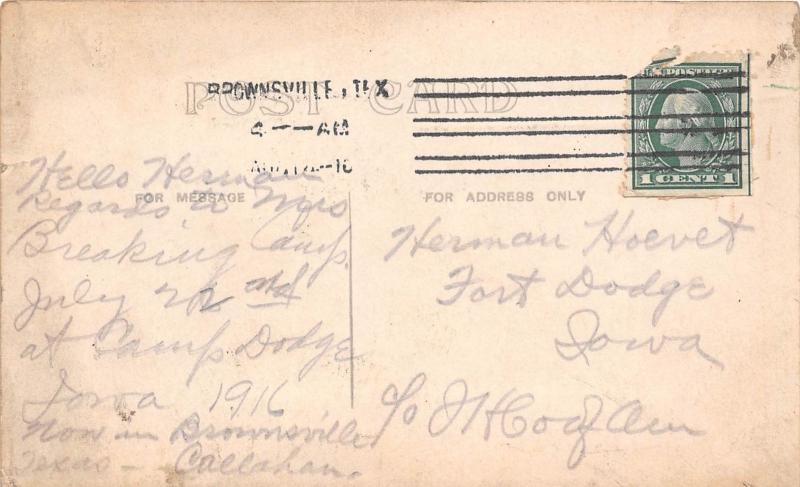 BROWNSVILLE, TEX
4 — AM
POST CARD
U.S. POSTAGE
1 CENT 1
FOR MESSAGE
Hello Herman
Regards to Mrs
Breaking Camp.
July 22nd
at Camp Dodge
Iowa 1916
Now in Brownsville
Texas — Callahan.
FOR ADDRESS ONLY
Herman Hoevet
Fort Dodge
Iowa
c/o